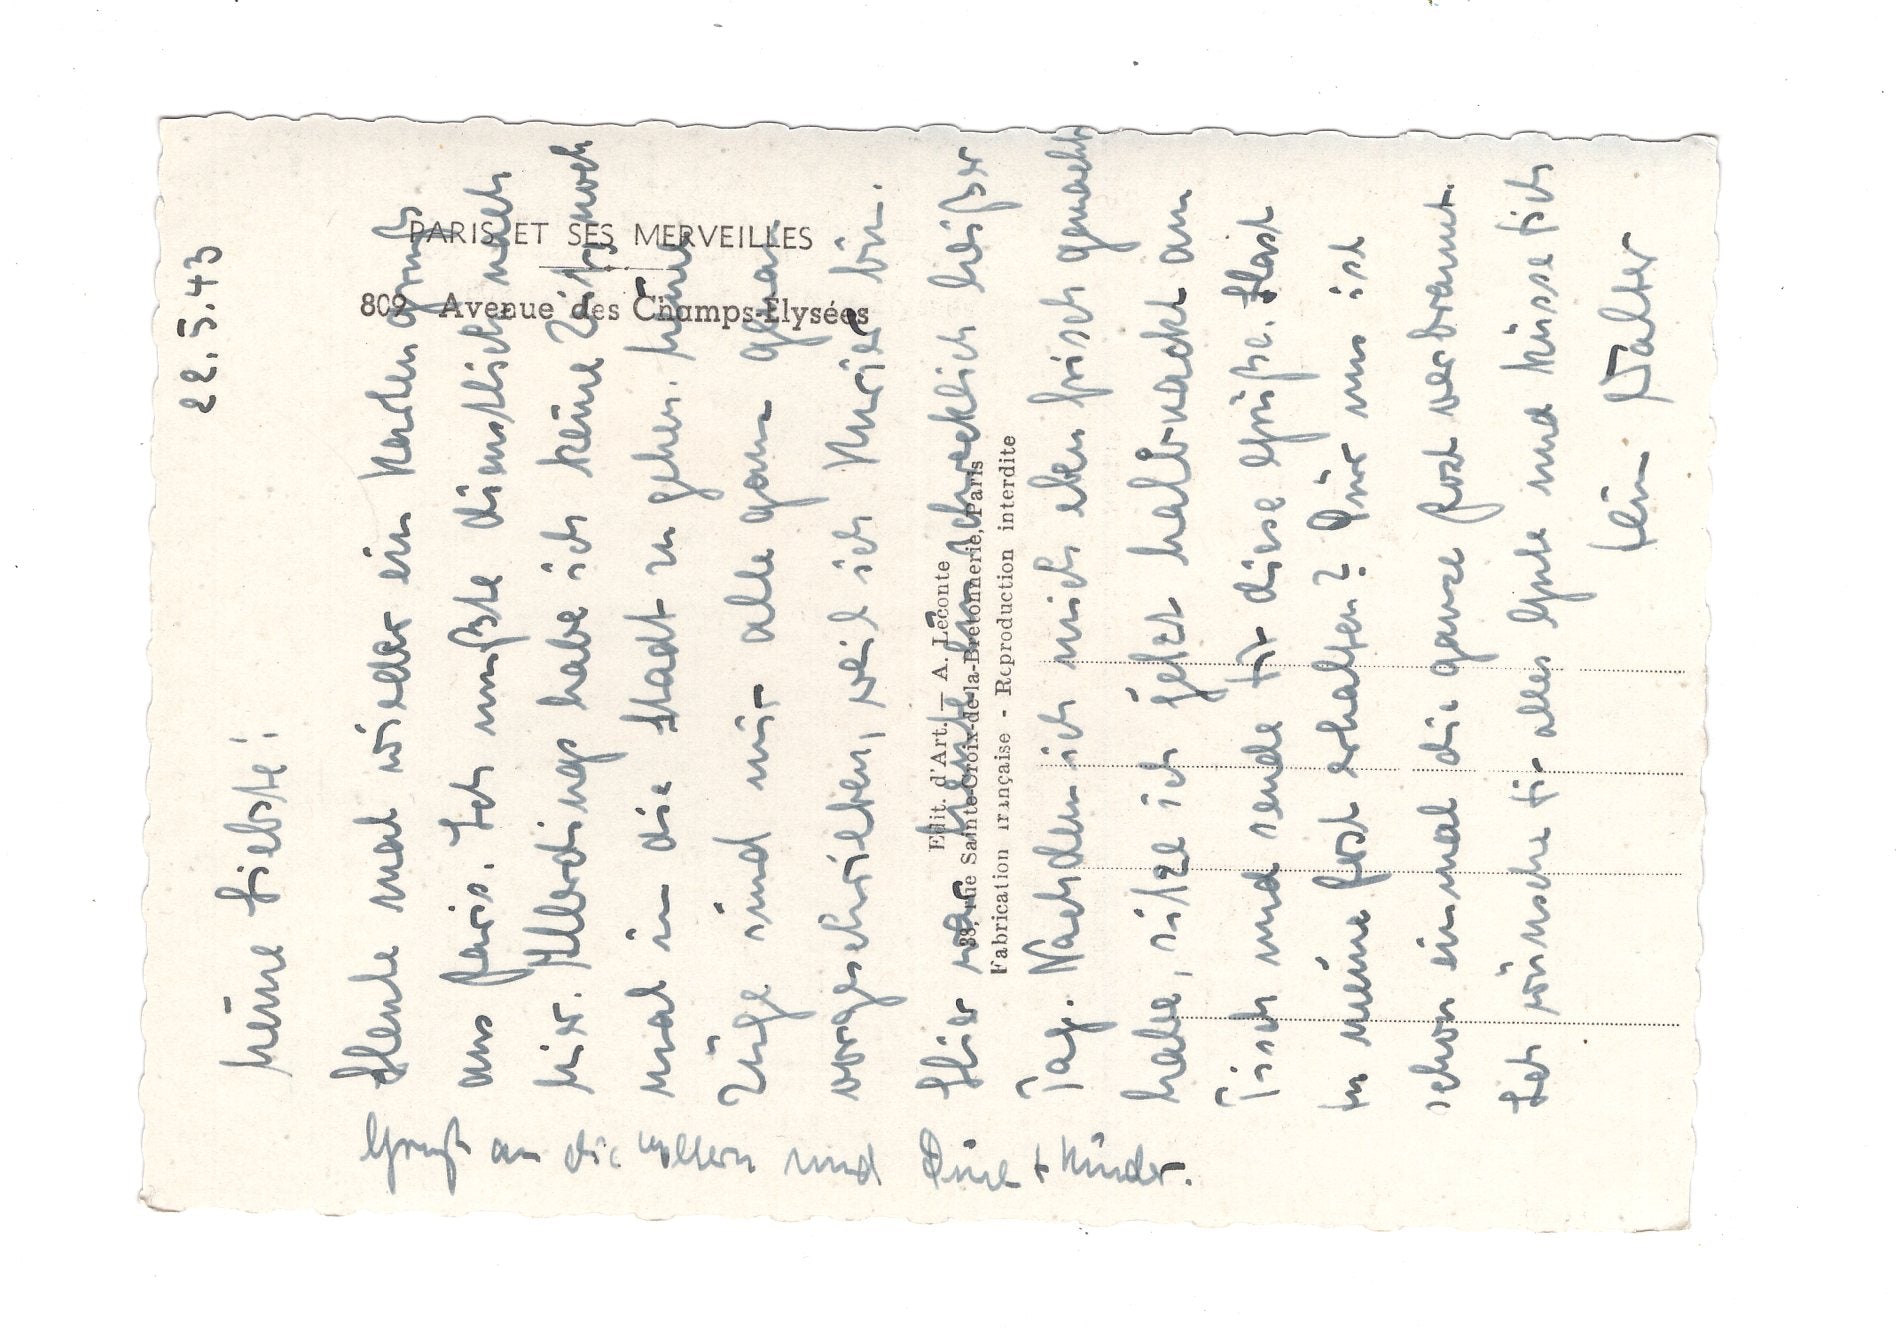 22.5.43
Meine Liebste!
Heute mal wieder ein Kartengruß
aus Paris. Ich mußte dienstlich nach
hier. Allerdings habe ich keine Zeit noch
mal in die Stadt zu gehen. Meine
Züge sind mir alle ganz genau
vorgeschrieben, weil ich Kurier bin.
Hier war heute ein schrecklich heißer
Tag. Nachdem ich mich eben frisch gemacht
habe, sitze ich jetzt halbnackt am
Tisch und sende Dir diese Grüße. Hast
Du meine Post erhalten? Dür uns ist
schon einmal die ganze Post verbrannt.
Ich wünsche Dir alles Gute und küsse Dich
Dein Walter
Gruß an die Eltern und + Kinder.
PARIS ET SES MERVEILLES
809 Avenue des Champs-Élysées
Edit. d'Art. — A. Leconte
38, rue Sainte-Croix-de-la-Bretonnerie, Paris
Fabrication française - Reproduction interdite